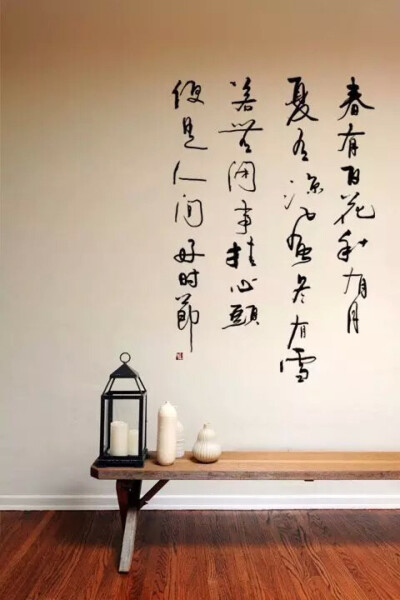 春有百花秋有月
夏有凉風冬有雪
若無闲事挂心頭
便是人间好时節